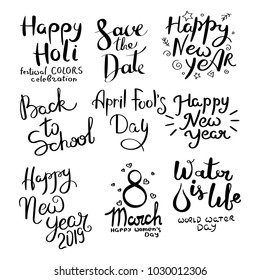 Happy
Holi
festival COLORS
celebration
Save
the
Date
Happy
New
yeAR
Back
to
School
April Fool's
Day
Happy
New
year
Happy
New
Year
2019
8
March
HAPPY WOMEN'S
DAY
Water
is life
WORLD WATER
DAY
shutterstock
IMAGE ID: 1030012306
www.shutterstock.com